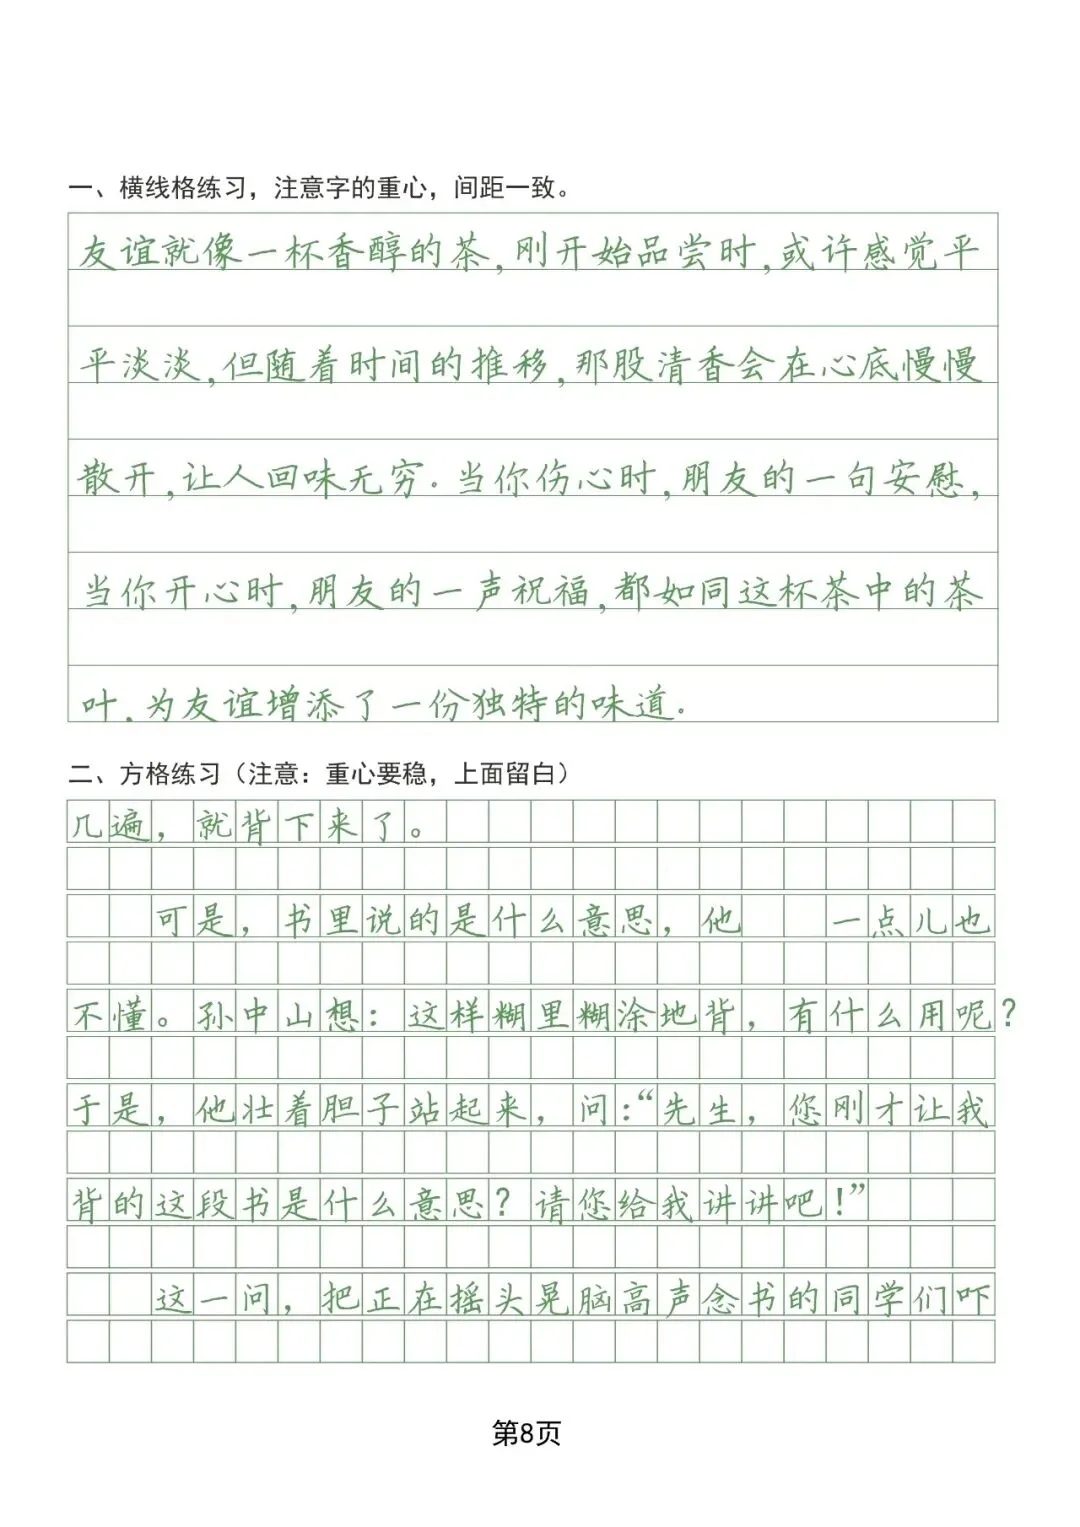 一、横线格练习，注意字的重心，间距一致。
友谊就像一杯香醇的茶,刚开始品尝时,或许感觉平
平淡淡,但随着时间的推移,那股清香会在心底慢慢
散开,让人回味无穷.当你伤心时,朋友的一句安慰,
当你开心时,朋友的一声祝福,都如同这杯茶中的茶
叶,为友谊增添了一份独特的味道.
二、方格练习（注意：重心要稳，上面留白）
几遍，就背下来了。
可是，书里说的是什么意思，他　　一点儿也
不懂。孙中山想：这样糊里糊涂地背，有什么用呢？
于是，他壮着胆子站起来，问：“先生，您刚才让我
背的这段书是什么意思？请您给我讲讲吧！”
这一问，把正在摇头晃脑高声念书的同学们吓
第8页